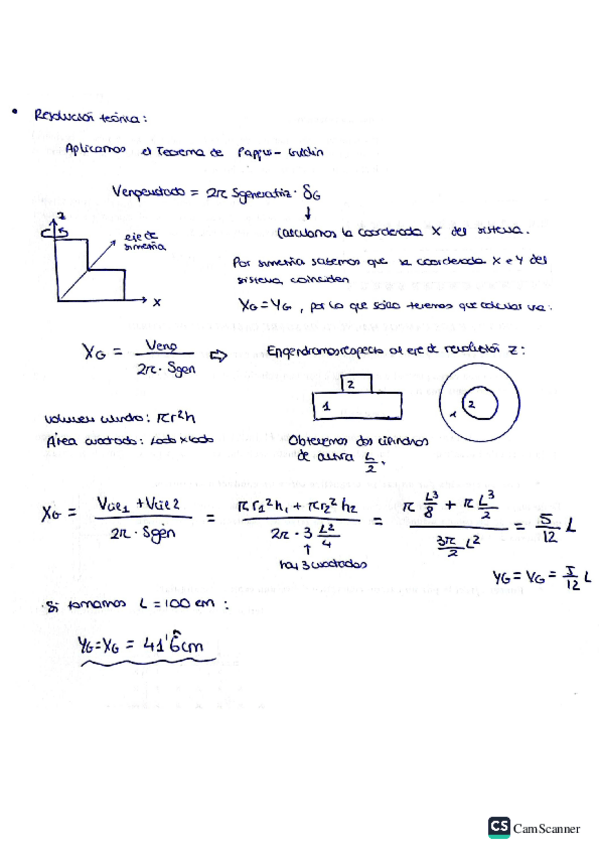 • Resolución teórica:
Aplicamos el Teorema de Pappus-Guldin
Vengendrado = 2π Sgeneratriz · δG
↓
Calculamos la coordenada X del sistema.
z
eje de simetría
x
Por simetría sabemos que la coordenada X e Y del sistema coinciden
XG = YG, por lo que sólo tenemos que calcular una:
XG = Veng / 2π · Sgen ⇒ Engendramos respecto al eje de revolución z:
2
1
2
1
Volumen cilindro: πr²h
Área cuadrado: lado x lado
Obtenemos dos cilindros de altura L/2.
XG = (Vcil1 + Vcil2) / (2π · Sgen) = (πr1²h1 + πr2²h2) / (2π · 3 L²/4) = (π L³/8 + π L³/2) / (3π/2 L²) = 5/12 L
↑
hay 3 cuadrados
YG = XG = 5/12 L
Si tomamos L = 100 cm:
YG = XG = 41'6̂ cm
CS CamScanner